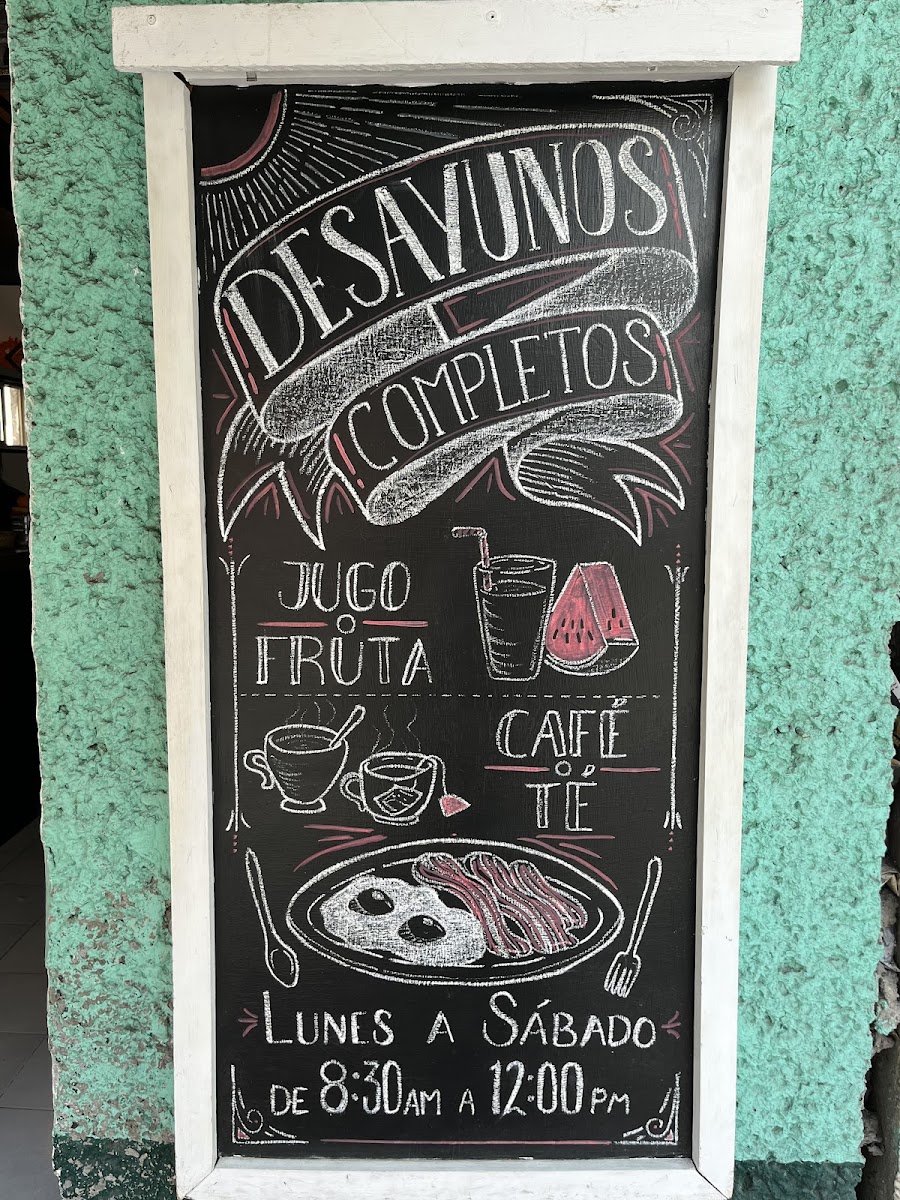 DESAYUNOS
COMPLETOS
JUGO
O
FRUTA
CAFÉ
O
TÉ
LUNES A SÁBADO
DE 8:30AM A 12:00PM